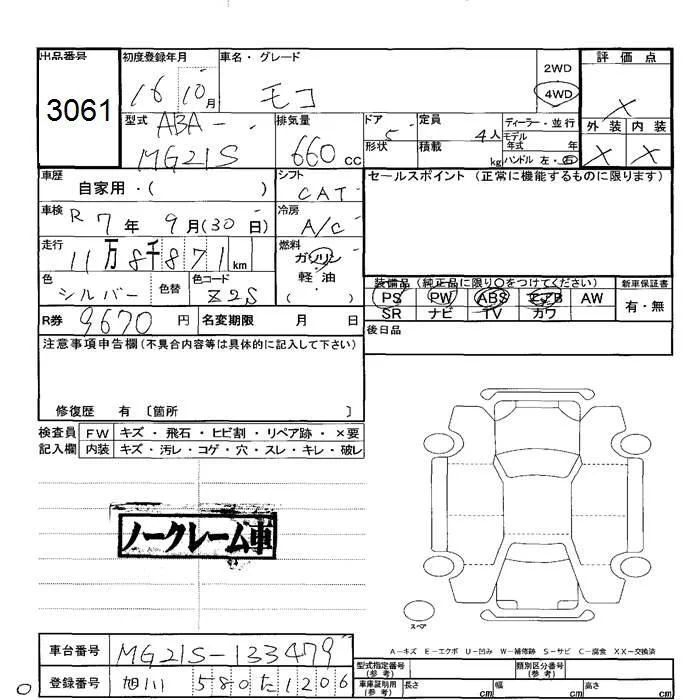 出品番号
3061
初度登録年月
16 10月
車名・グレード
モコ
2WD
4WD
評価点
X
外装 内装
X X
型式
ABA-
MG21S
排気量
660 cc
ドア 5
形状
定員 4人
積載 kg
ディーラー・並行
モデル
年式 年
ハンドル 左・右
車歴
自家用・( )
シフト
CAT
車検
R 7年 9月(30日)
冷房
A/C
走行
11万8千871km
燃料
ガソリン
軽油
( )
色
シルバー
色替
色コード
Z2S
R券 9670円
名変期限 月 日
セールスポイント (正常に機能するものに限ります)
装備品 (純正品に限り○をつけてください)
PS PW ABS エアB AW
SR ナビ TV カワ
新車保証書
有・無
後日品
注意事項申告欄(不具合内容等は具体的に記入して下さい)
修復歴 有 〔箇所 〕
検査員
記入欄
FW キズ・飛石・ヒビ割・リペア跡・×要
内装 キズ・汚レ・コゲ・穴・スレ・キレ・破レ
ノークレーム車
スペア
A-キズ E-エクボ U-凹み W-補修跡 S-サビ C-腐食 XX-交換済
車台番号 MG21S-133479
登録番号 旭川 580 た 1206
型式指定番号
(参考)
類別区分番号
(参考)
車庫証明用
(参考)
長さ cm 幅 cm 高さ cm